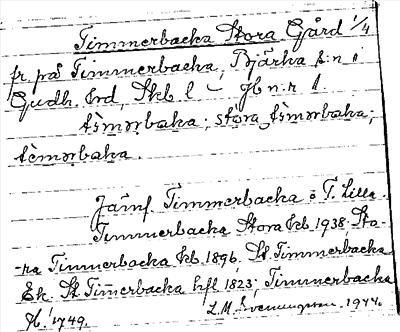 Timmerbacka Stora Gård 1/4
fr. på Timmerbacka, Bjärka s:n i
Gudh. hrd, Skb. l – gb n:r 1.
tìmərbaka; stora tìmərbaka;
tìmərbaka.
Jämf. Timmerbacka o T. Lilla
Timmerbacka Stora kb 1938. Sto-
ra Timmerbacka kb. 1896. St. Timmerbacka
Ek. St Tim̄erbacka hfl 1823, Timmerbacka
1749. L.M. Svenungsson. 1944.